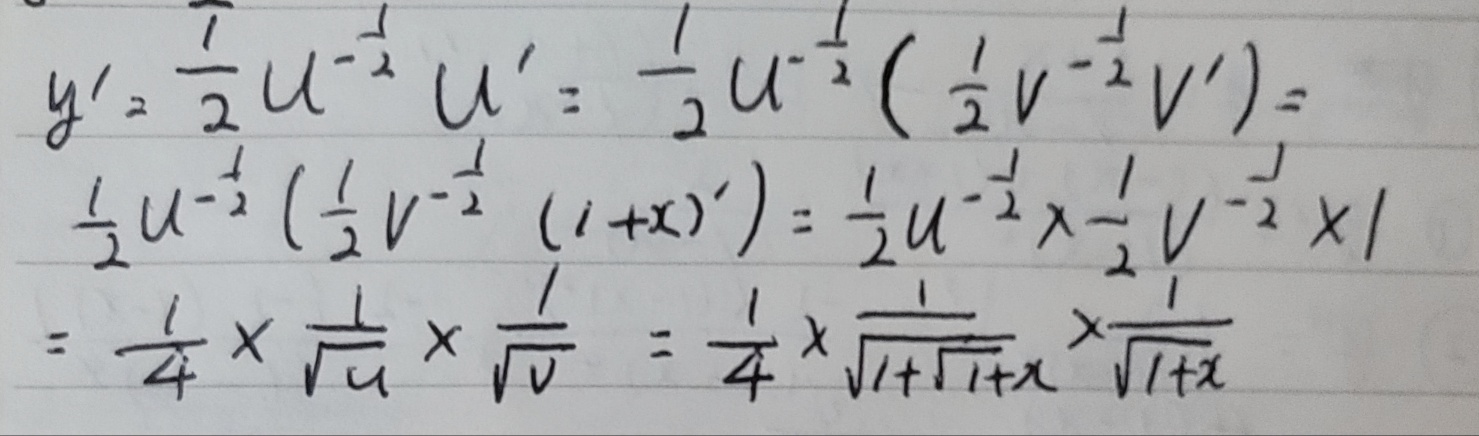 y' = \frac{1}{2} u^{-\frac{1}{2}} u' = \frac{1}{2} u^{-\frac{1}{2}} ( \frac{1}{2} v^{-\frac{1}{2}} v' ) =
\frac{1}{2} u^{-\frac{1}{2}} ( \frac{1}{2} v^{-\frac{1}{2}} (1+x)' ) = \frac{1}{2} u^{-\frac{1}{2}} × \frac{1}{2} v^{-\frac{1}{2}} × 1
= \frac{1}{4} × \frac{1}{\sqrt{u}} × \frac{1}{\sqrt{v}} = \frac{1}{4} × \frac{1}{\sqrt{1+\sqrt{1+x}}} × \frac{1}{\sqrt{1+x}}